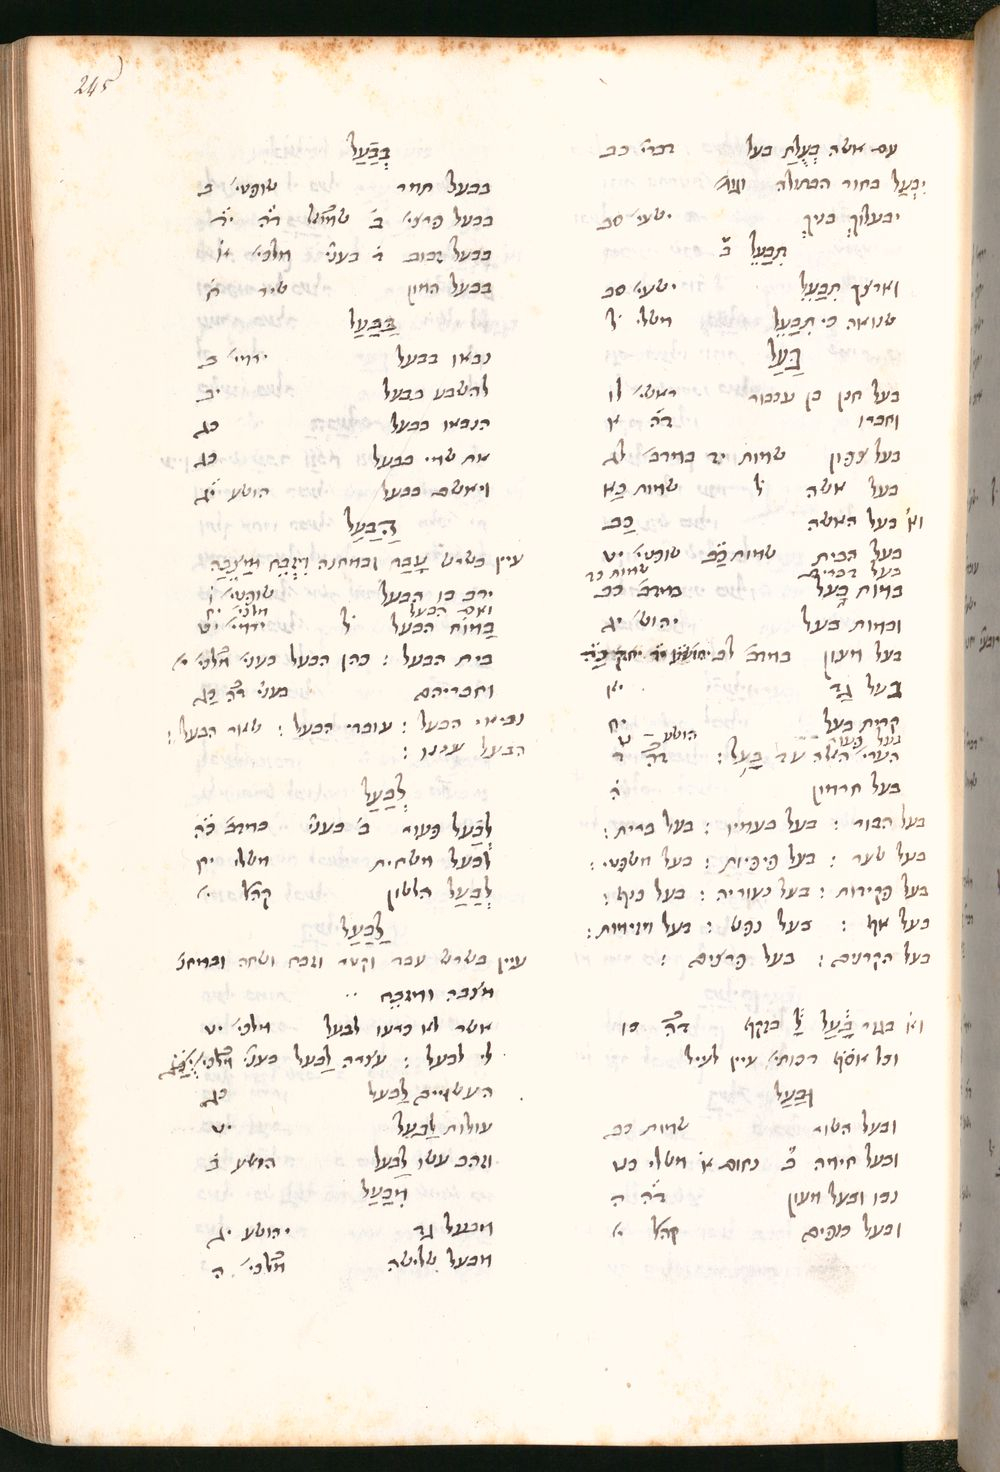 245
עם אשה בְעֻלַת בעל דברי׳ כב
יִבְעַל בחור הבתולה
יבעלוךְ בניך ישעי׳ סב
תִבָעֵל ב̇
וארצך תִבָעֵל ישעי׳ סב
שנואה כי תִבָעֵל משלי ל
בַעַל
בעל חנן בן עכבור ראשי׳ לו
וחברו דה̇ א
בעל צפון שמות יד במדב׳ לג
בעל אשה ל̇ שמות כא
וא̇ בעל האשה כב
בעל הבית שמות כב שופטי׳ יט
בעל דברים שמות כד
במות בָעל במדב׳ כב
ובמות בעל יהוש׳ יג
בעל מעון במדב׳ לב
בעל גָד יא
קרית בעל יח
בעל חרמון ה
בעל הבור : בעל בעמיו : בעל ברית :
בעל שער : בעל פיפיות : בעל משפטי׳ :
בעל פקידות : בעל נעוריה : בעל כנף :
בעל אף : בעל נפש : בעל מזימות :
בעל הקרנים : בעל פרצים :
וא̇ בגור בָעַל ל̇ בזקף דה̇ כו
וכל אס̇ף דכותי׳ עיין לעיל
וּבַעַל
ובעל השור שמות כב
ובעל חימה ב̇ נחום א̇ משלי כט
נבו ובעל מעון דה̇ ה
ובעל כנפים קהל׳ י
בְבַעַל
בבעל תמר שופטי׳ כ
בבעל פרצי׳ ב̇ שמואל דה̇ יד
בבעל זבוב ד̇ בעני׳ מלכי׳ א̇
בבעל המון שיר ח̇
בַבַעַל
נבאו בבעל ירמי׳ ב
להשבע בבעל יב
הנבאו בבעל כג
את שמי בבעל כג
ויאשם בבעל הושע יג
הַבַעַל
עיין בשרש עָבַד ובמחנה וְמִזְבֵחַ וּמַצֵבָה
ירב בו הבעל שופטי׳ ו̇
ואם הבעל מלכי׳ יח
בָמוֹת הבעל ל̇ ירמי׳ יט
בית הבעל : כהן הבעל בעני׳ מלכי׳ י׳
וחבריהם בעני׳ דה̇ כג
נביאי הבעל : עובדי הבעל : שאר הבעל :
הבעל עננו :
לְבַעַל
לְבַעַל פעור ב̇ בעני׳ במדב׳ כה̇
לבעל משחית משלי יח
לְבַעַל הלשון קהל׳ י׳
לַבַעַל
עיין בשרש עבד וקטר וזבח ושחה ובמחנ׳
מצבה ומזבח ..
אשר לא כרעו לבעל מלכי׳ יט
לי לבעל : עצרה לַבעל בעני׳ מלכי׳
העשויים לַבעל כג
עולות לַבַעַל יט
וזהב עשו לַבעל הושע ב̇
מִבַעַל
מבעל גד יהושע יג
מבעל שלישה מלכי׳ ה